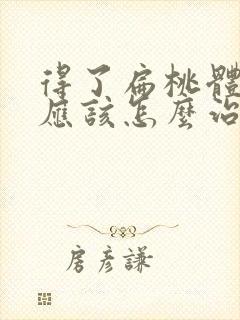 得了扁桃體
應該怎麼治
房彥謙